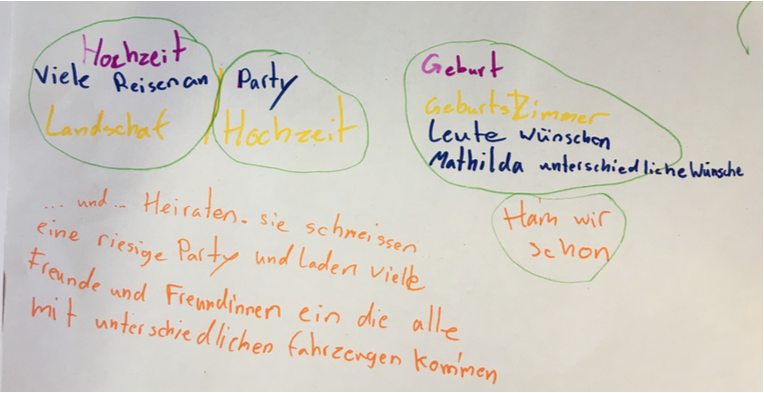 Hochzeit
Viele Reisen an
Landschaf
Party
Hochzeit
Geburt
GeburtsZimmer
Leute wünschen
Mathilda unterschiedliche Wünsche
Ham wir
schon
... und .. Heiraten. sie schmeissen
eine riesige Party und laden viele
Freunde und Freundinnen ein die alle
mit unterschiedlichen fahrzeugen kommen